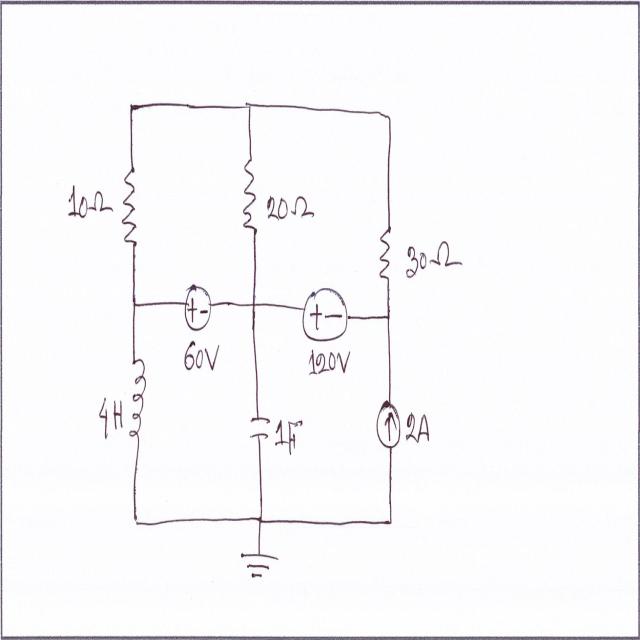 10Ω
20Ω
30Ω
+-
+-
60V
120V
4H
1F
2A